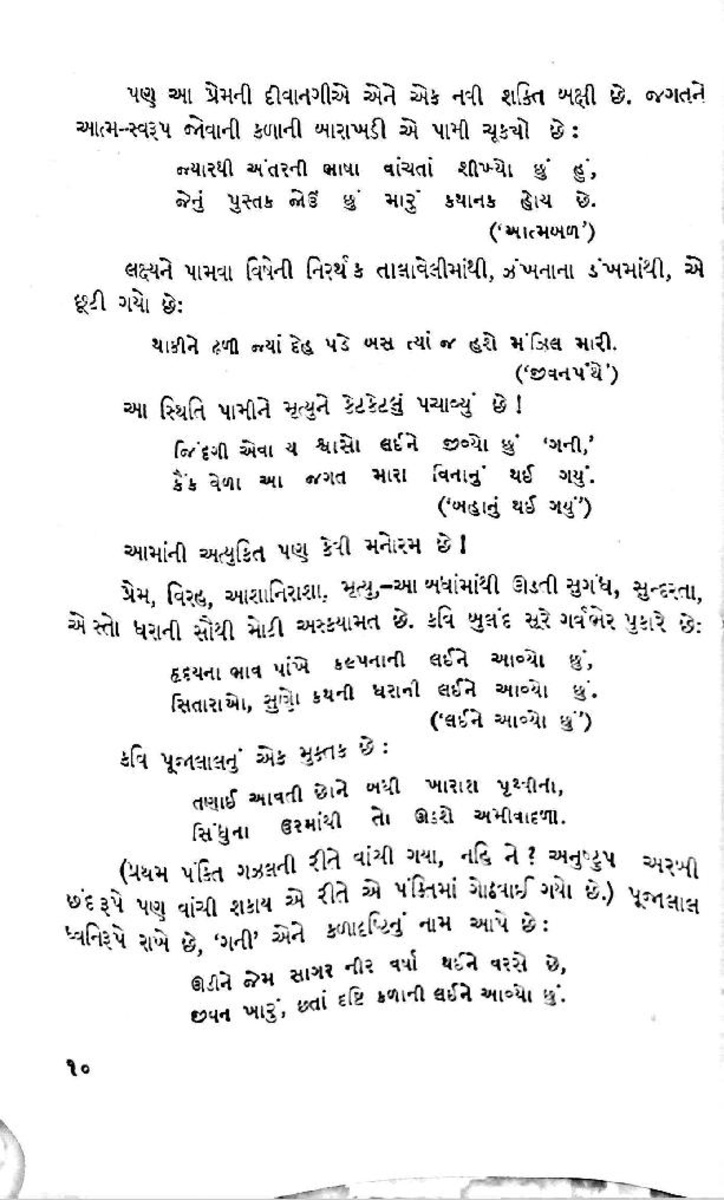 પણ આ પ્રેમની દીવાનગીએ એને એક નવી શક્તિ બક્ષી છે. જગતને
આત્મ-સ્વરૂપ જોવાની કળાની બારાખડી એ પામી ચૂક્યો છે :
જ્યારથી અંતરની ભાષા વાંચતાં શીખ્યો છું હું,
જેનું પુસ્તક જોઉં છું મારું કથાનક હોય છે.
(‘આત્મબળ’)
લક્ષ્યને પામવા વિષેની નિરર્થક તાલાવેલીમાંથી, ઝંખનાના ડંખમાંથી, એ
છૂટી ગયો છે:
થાકીને ઢળી જ્યાં દેહ પડે બસ ત્યાં જ હશે મંઝિલ મારી.
(‘જીવનપંથે’)
આ સ્થિતિ પામીને મૃત્યુને કેટકેટલું પચાવ્યું છે !
જિંદગી એવા ય શ્વાસો લઈને જીવ્યો છું ‘ગની,’
કૈંક વેળા આ જગત મારા વિનાનું થઈ ગયું.
(‘બહાનું થઈ ગયું’)
આમાંની અત્યુકિત પણ કેવી મનોરમ છે !
પ્રેમ, વિરહ, આશાનિરાશા, મૃત્યુ,–આ બધાંમાંથી ઊડતી સુગંધ, સુન્દરતા,
એ સ્તો ધરાની સૌથી મોટી અસ્કયામત છે. કવિ બુલંદ સૂરે ગર્વભેર પુકારે છે:
હૃદયના ભાવ પાંખે કલ્પનાની લઈને આવ્યો છું,
સિતારાઓ, સુણો કથની ધરાની લઈને આવ્યો છું.
(‘લઈને આવ્યો છું’)
કવિ પૂજાલાલનું એક મુક્તક છે :
તણાઈ આવતી છોને બધી ખારાશ પૃથ્વીના,
સિંધુના ઉરમાંથી તો ઊઠશે અમીવાદળા.
(પ્રથમ પંક્તિ ગઝલની રીતે વાંચી ગયા, નહિ ને ? અનુષ્ટુપ અરબી
છંદરૂપે પણ વાંચી શકાય એ રીતે એ પંક્તિમાં ગોઠવાઈ ગયો છે.) પૂજાલાલ
ધ્વનિરૂપે રાખે છે, ‘ગની’ એને કળાદૃષ્ટિનું નામ આપે છે :
ઊડીને જેમ સાગર નીર વર્ષા થઈને વરસે છે,
જીવન ખારું, છતાં દૃષ્ટિ કળાની લઈને આવ્યો છું.
૧૦